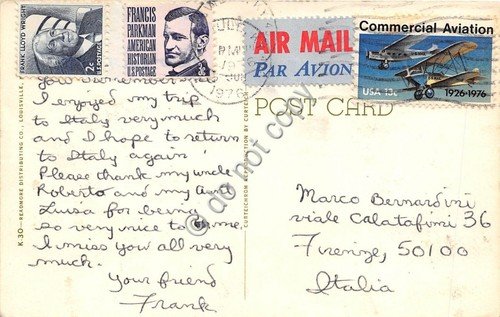 FRANK LLOYD WRIGHT
2c U.S. POSTAGE
FRANCIS
PARKMAN
AMERICAN
HISTORIAN
U.S. POSTAGE
3c
PM
1976
AIR MAIL
PAR AVION
Commercial Aviation
USA 13c 1926-1976
POST CARD
K-30—READMORE DISTRIBUTING CO., LOUISVILLE,
CURTEICHCOLOR
I enjoyed my trip
to Italy very much
and I hope to return
to Italy again.
Please thank my uncle
Roberto and my Aunt
Luisa for being
so very nice to me.
I miss you all very
much.
Your friend
Frank
Marco Bernardini
viale Calatafimi 36
Firenze, 50100
Italia
do not copy